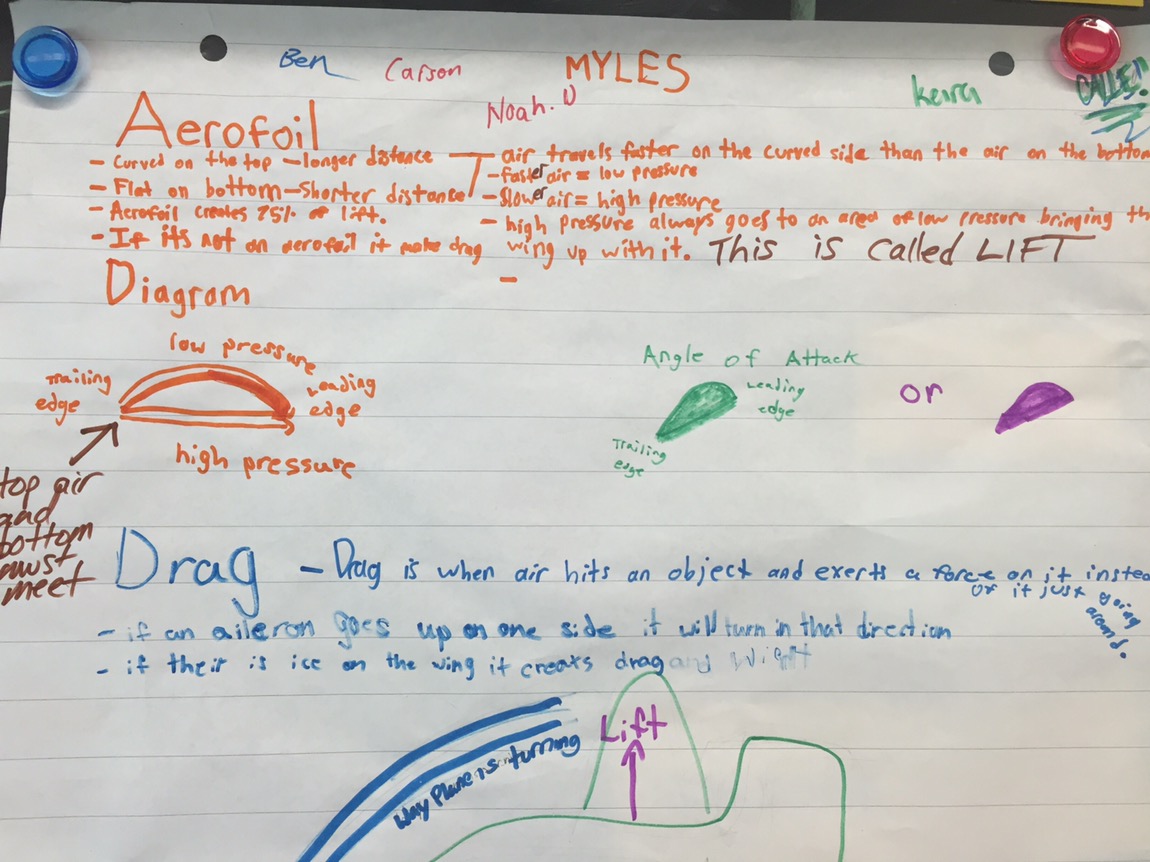 Ben
Carson
MYLES
Noah. U
Keira
CALLE!!
Aerofoil
- Curved on the top - longer distance
- Flat on bottom - Shorter distance
- Aerofoil creates 75% of lift.
- If its not an aerofoil it make drag
- air travels faster on the curved side than the air on the bottom
- faster air = low pressure
- slower air = high pressure
- high pressure always goes to an area of low pressure bringing th
wing up with it. This is called LIFT
-
Diagram
low pressure
Trailing
edge
Leading
edge
high pressure
top air
and
bottom
must
meet
Angle of Attack
Leading
edge
Trailing
edge
or
Drag - Drag is when air hits an object and exerts a force on it instea
of it just going
around.
- if an aileron goes up on one side it will turn in that direction
- if their is ice on the wing it creats drag and
Lift
Way Plane is turning